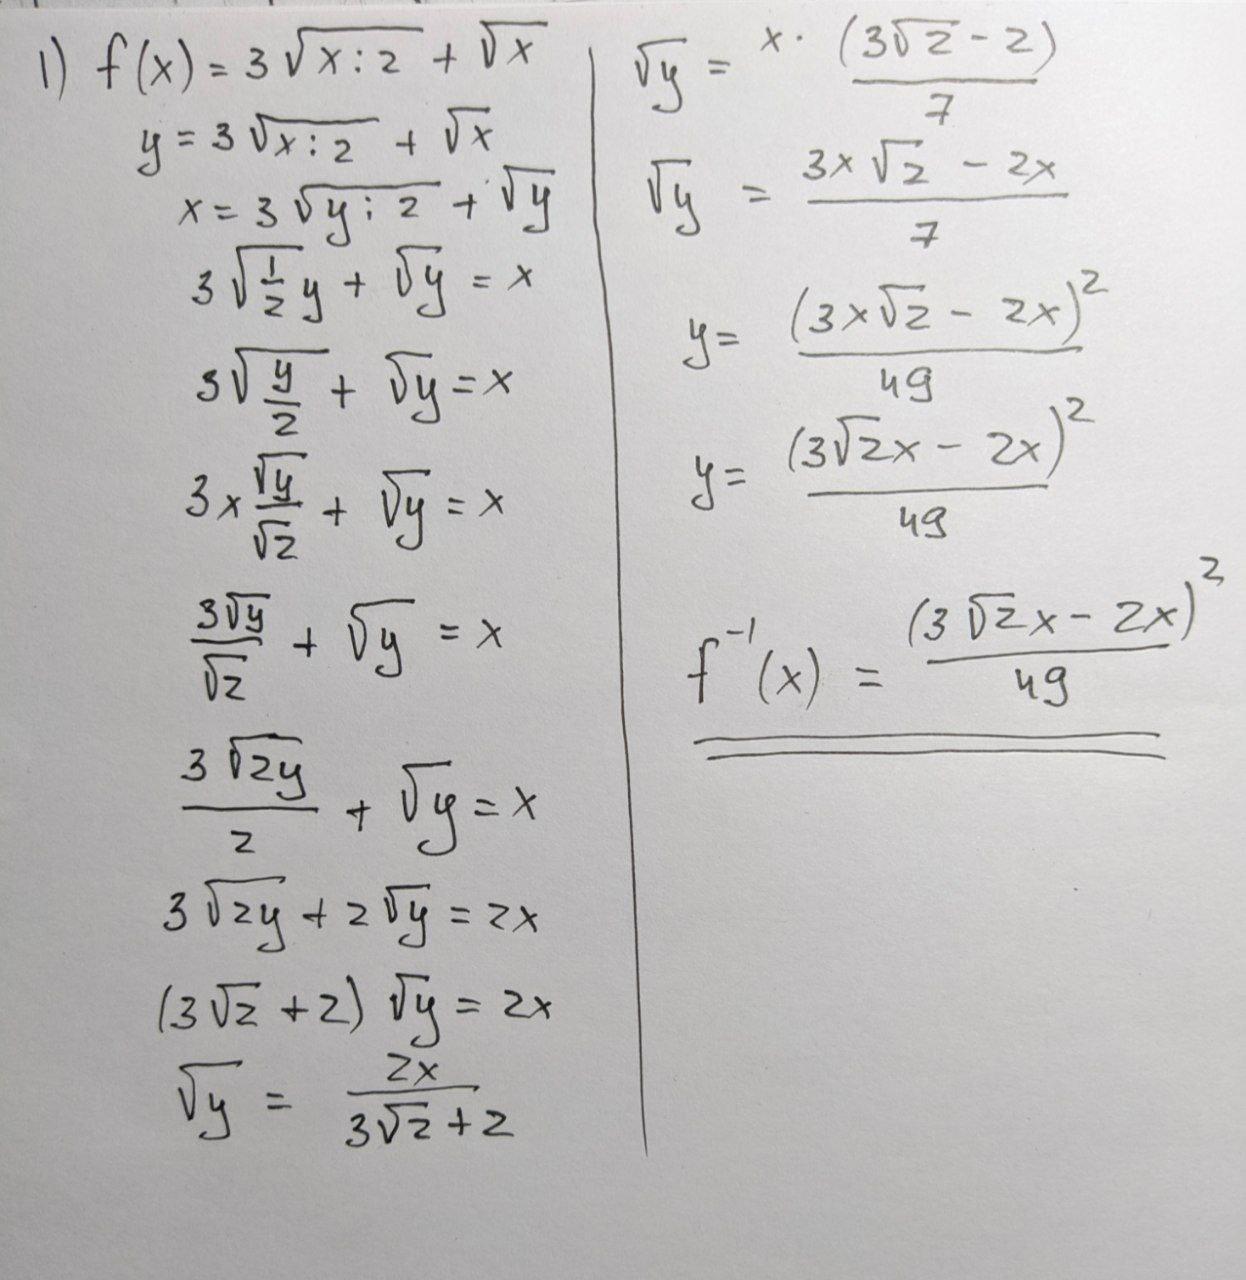 1) f(x) = 3√(x:2) + √x
y = 3√(x:2) + √x
x = 3√(y:2) + √y
3√(1/2)y + √y = x
3√(y/2) + √y = x
3x √y/√2 + √y = x
3√y/√2 + √y = x
3√(2y)/2 + √y = x
3√(2y) + 2√y = 2x
(3√2 + 2) √y = 2x
√y = 2x/(3√2 + 2)
√y = x · (3√2 - 2)/7
√y = (3x√2 - 2x)/7
y = (3x√2 - 2x)²/49
y = (3√2x - 2x)²/49
f⁻¹(x) = (3√2x - 2x)²/49